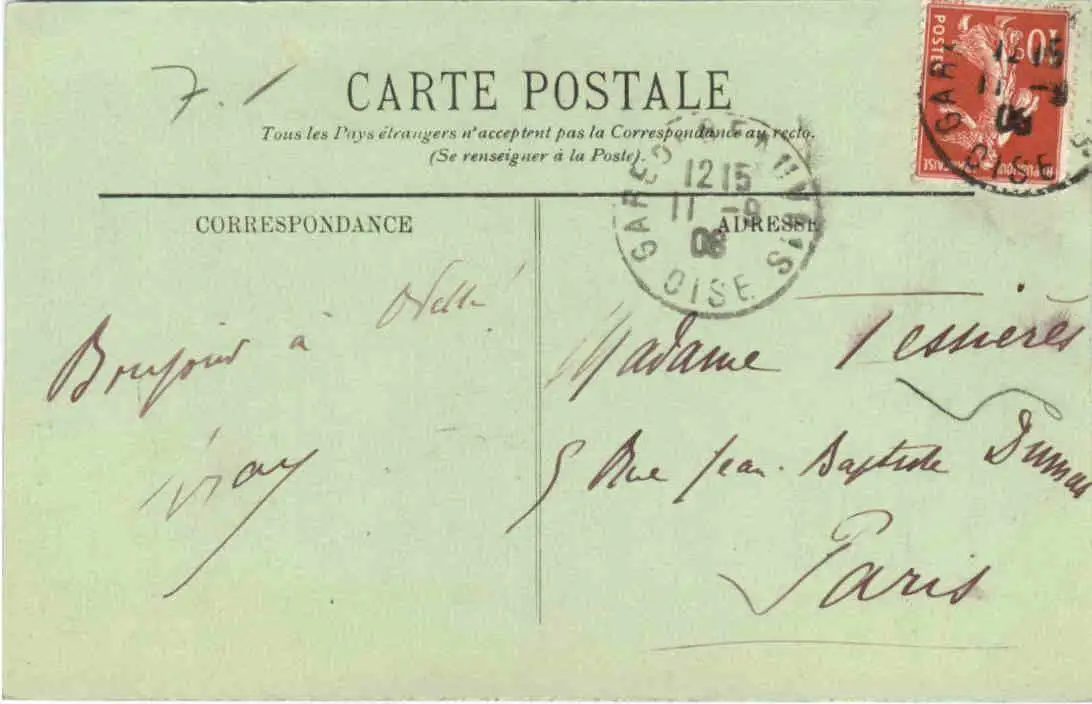 7.1
CARTE POSTALE
Tous les Pays étrangers n'acceptent pas la Correspondance au recto.
(Se renseigner à la Poste).
CORRESPONDANCE
ADRESSE
GARE DE BEAUVAIS
12 15
11 -9
08
OISE
10c
POSTES
REPUBLIQUE FRANÇAISE
GARE
12 15
11 -9
08
OISE
Bonjour à
Madame Tessières
5 Rue Jean-Baptiste Dumas
Paris